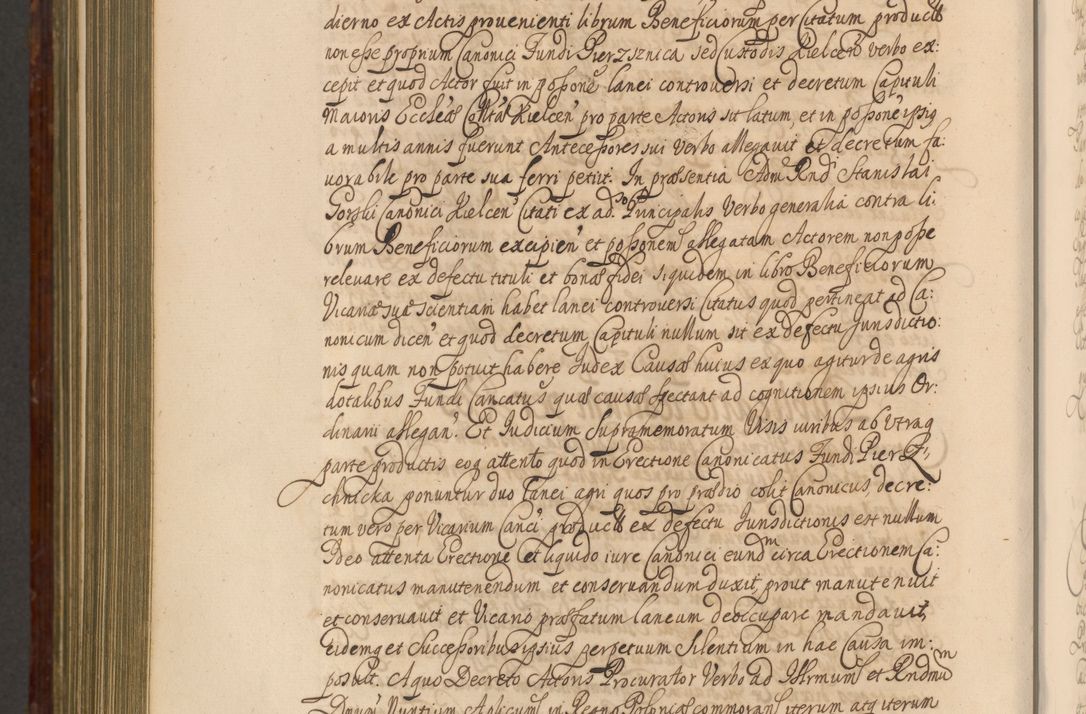 dierno ex Actis provenienti librum Beneficiorum per Citatum product
non esse proprium Canonici Fundi Pierzsznica sed Custodis Kielcen verbo ex:
cepit et quod Actor fuit in possone lanei controversi et decretum Capituli
Maioris Eccleæ Colltæ Kielcen pro parte Actoris sit latum, et in possone ipsig
a multis annis fuerunt Antecessores sui verbo allegavit et decretum fa:
vorabile pro parte sua ferri petiit. In præsentia Adm Rndi Stanislai
Gorski Canonici Kielcen Citati ex adso Principalis verbo generalia contra li:
brum Beneficiorum excipien et possonem allegatam Actorem non posse
relevare ex defectu tituli et bonæ fidei siquidem in libro Beneficiorum
Vicariæ suæ scientiam habet lanei controversi Citatus quod pertineat ad Ca:
nonicum dicen et quod decretum Capituli nullum sit ex defectu Jurisdictio:
nis quam non potuit habere Judex Causæ huius ex quo agitur de agris
dotalibus Fundi Cancatus quæ causæ spectant ad cognitionem ipsius Or:
dinarii allegan. Et Judicium supramemoratum Visis iuribus ab utraq
parte productis eoq attento quod in Erectione Canonicatus Fundi Pierz,
chnicka ponuntur duo lanei agri quos pro prædio colit Canonicus decre:
tum vero per Vicarium Canci product ex defectu Jurisdictionis est nullum
Ideo attenta Erectione et liquido iure Canonici eundm circa Erectionem Ca:
nonicatus manutenendum et conservandum duxit, prout manutenuit
et conservavit et Vicario præfatum laneum deoccupare mandavit,
eidemq et Successoribus ipsius perpetuum silentium in hac Causa im:
posuit. A quo Decreto Actoris Procurator Verbo ad Illrmum et Rndmum
Dnum Nuntium Aplicum in Regno Poloniæ commoran iterum atq iterum